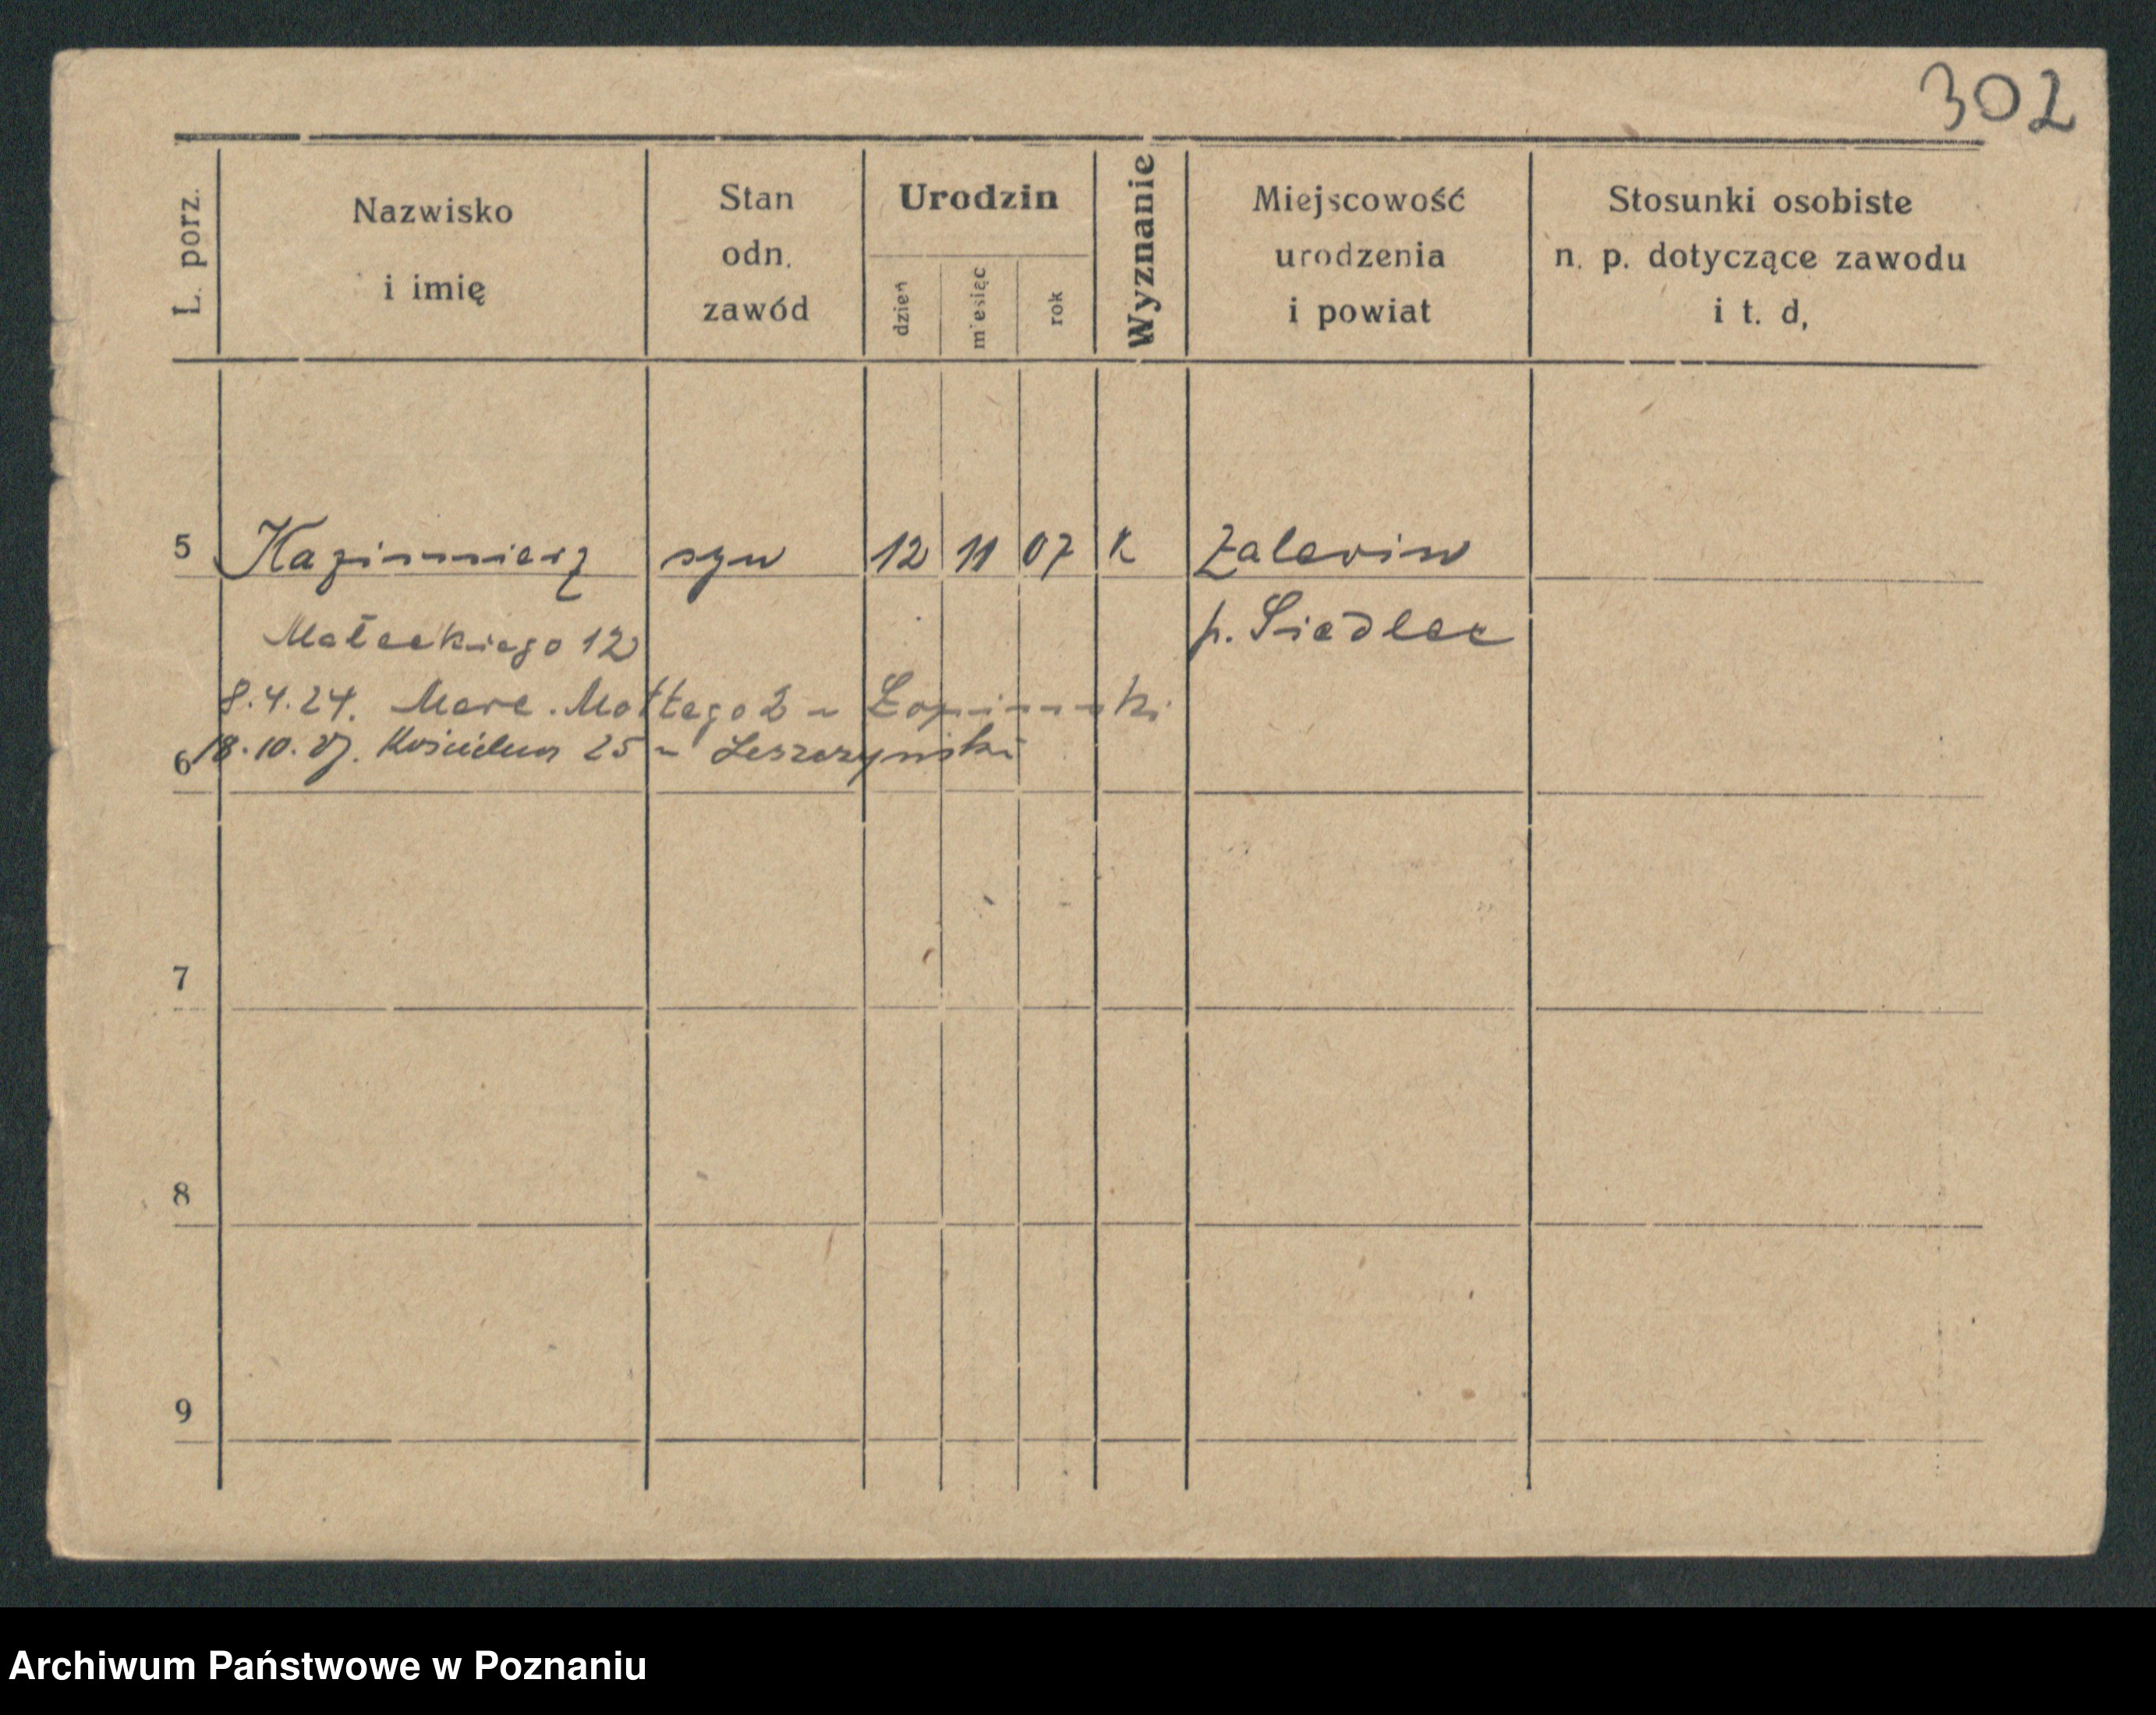 302
L. porz.
Nazwisko
i imię
Stan
odn.
zawód
Urodzin
dzień
miesiąc
rok
Wyznanie
Miejscowość
urodzenia
i powiat
Stosunki osobiste
n. p. dotyczące zawodu
i t. d,
5 Kazimierz syn 12 11 07 K
p. Siedlec
Małeckiego 12
8.4.24. Marc. Mottego 2 -
6 18.10. 25 - Leszczyński
7
8
9
Archiwum Państwowe w Poznaniu